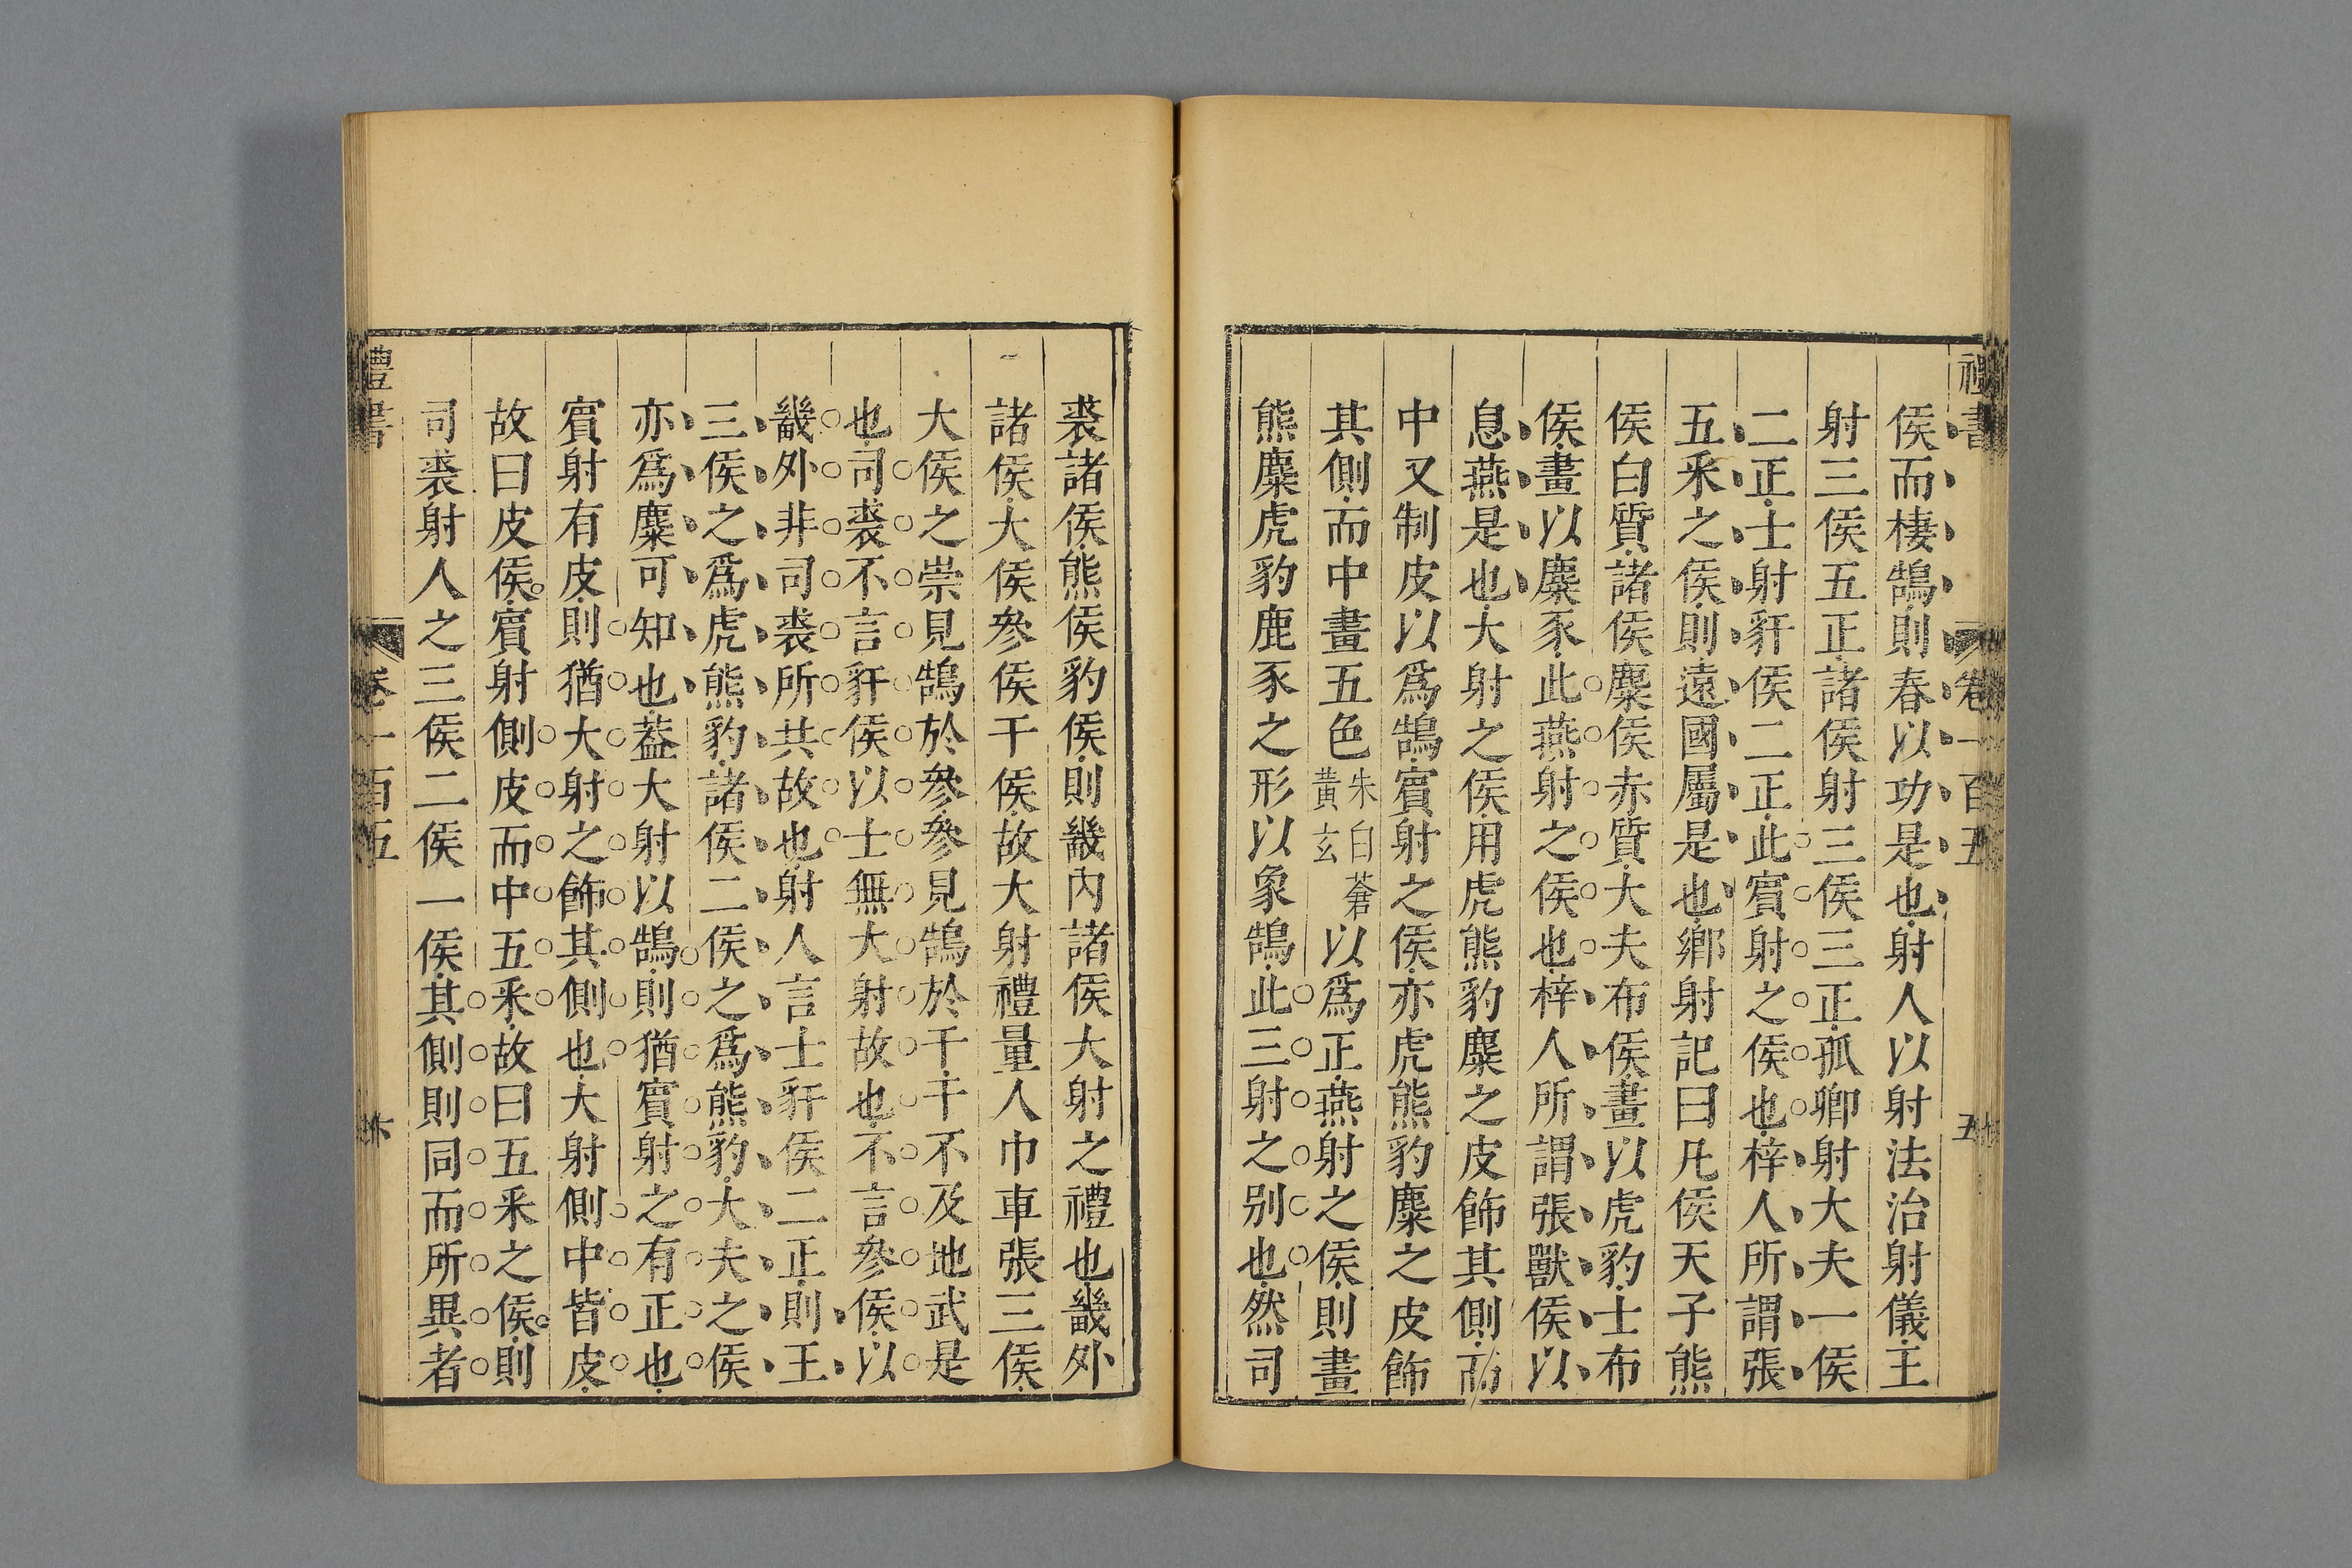 禮書 卷一百五 五
侯而棲鵠則春以功是也射人以射法治射儀王
射三侯五正諸侯射三侯三正孤卿射大夫一侯
二正士射豻侯二正此賔射之侯也梓人所謂張
五釆之侯則遠國屬是也鄉射記曰凡侯天子熊
侯白質諸侯麋侯赤質大夫布侯畫以虎豹士布
侯畫以麋豕此燕射之侯也梓人所謂張獸侯以
息燕是也大射之侯用虎熊豹麋之皮飾其側而
中又制皮以為鵠賔射之侯亦虎熊豹麋之皮飾
其側而中畫五色朱白蒼黄玄以爲正燕射之侯則畫
熊麋虎豹鹿豕之形以象鵠此三射之别也然司
裘諸侯熊侯豹侯則畿内諸侯大射之禮也畿外
諸侯大侯參侯干侯故大射禮量人巾車張三侯
大侯之崇見鵠於參參見鵠於干干不及地武是
也司裘不言豻侯以士無大射故也不言參侯以
畿外非司裘所共故也射人言士豻侯二正則王
三侯之爲虎熊豹諸侯二侯之爲熊豹大夫之侯
亦爲麋可知也葢大射以鵠則猶賔射之有正也
賔射有皮則猶大射之飾其側也大射側中皆皮
故曰皮侯賔射側皮而中五釆故曰五釆之侯則
司裘射人之三侯二侯一侯其側則同而所異者
禮書 卷一百五